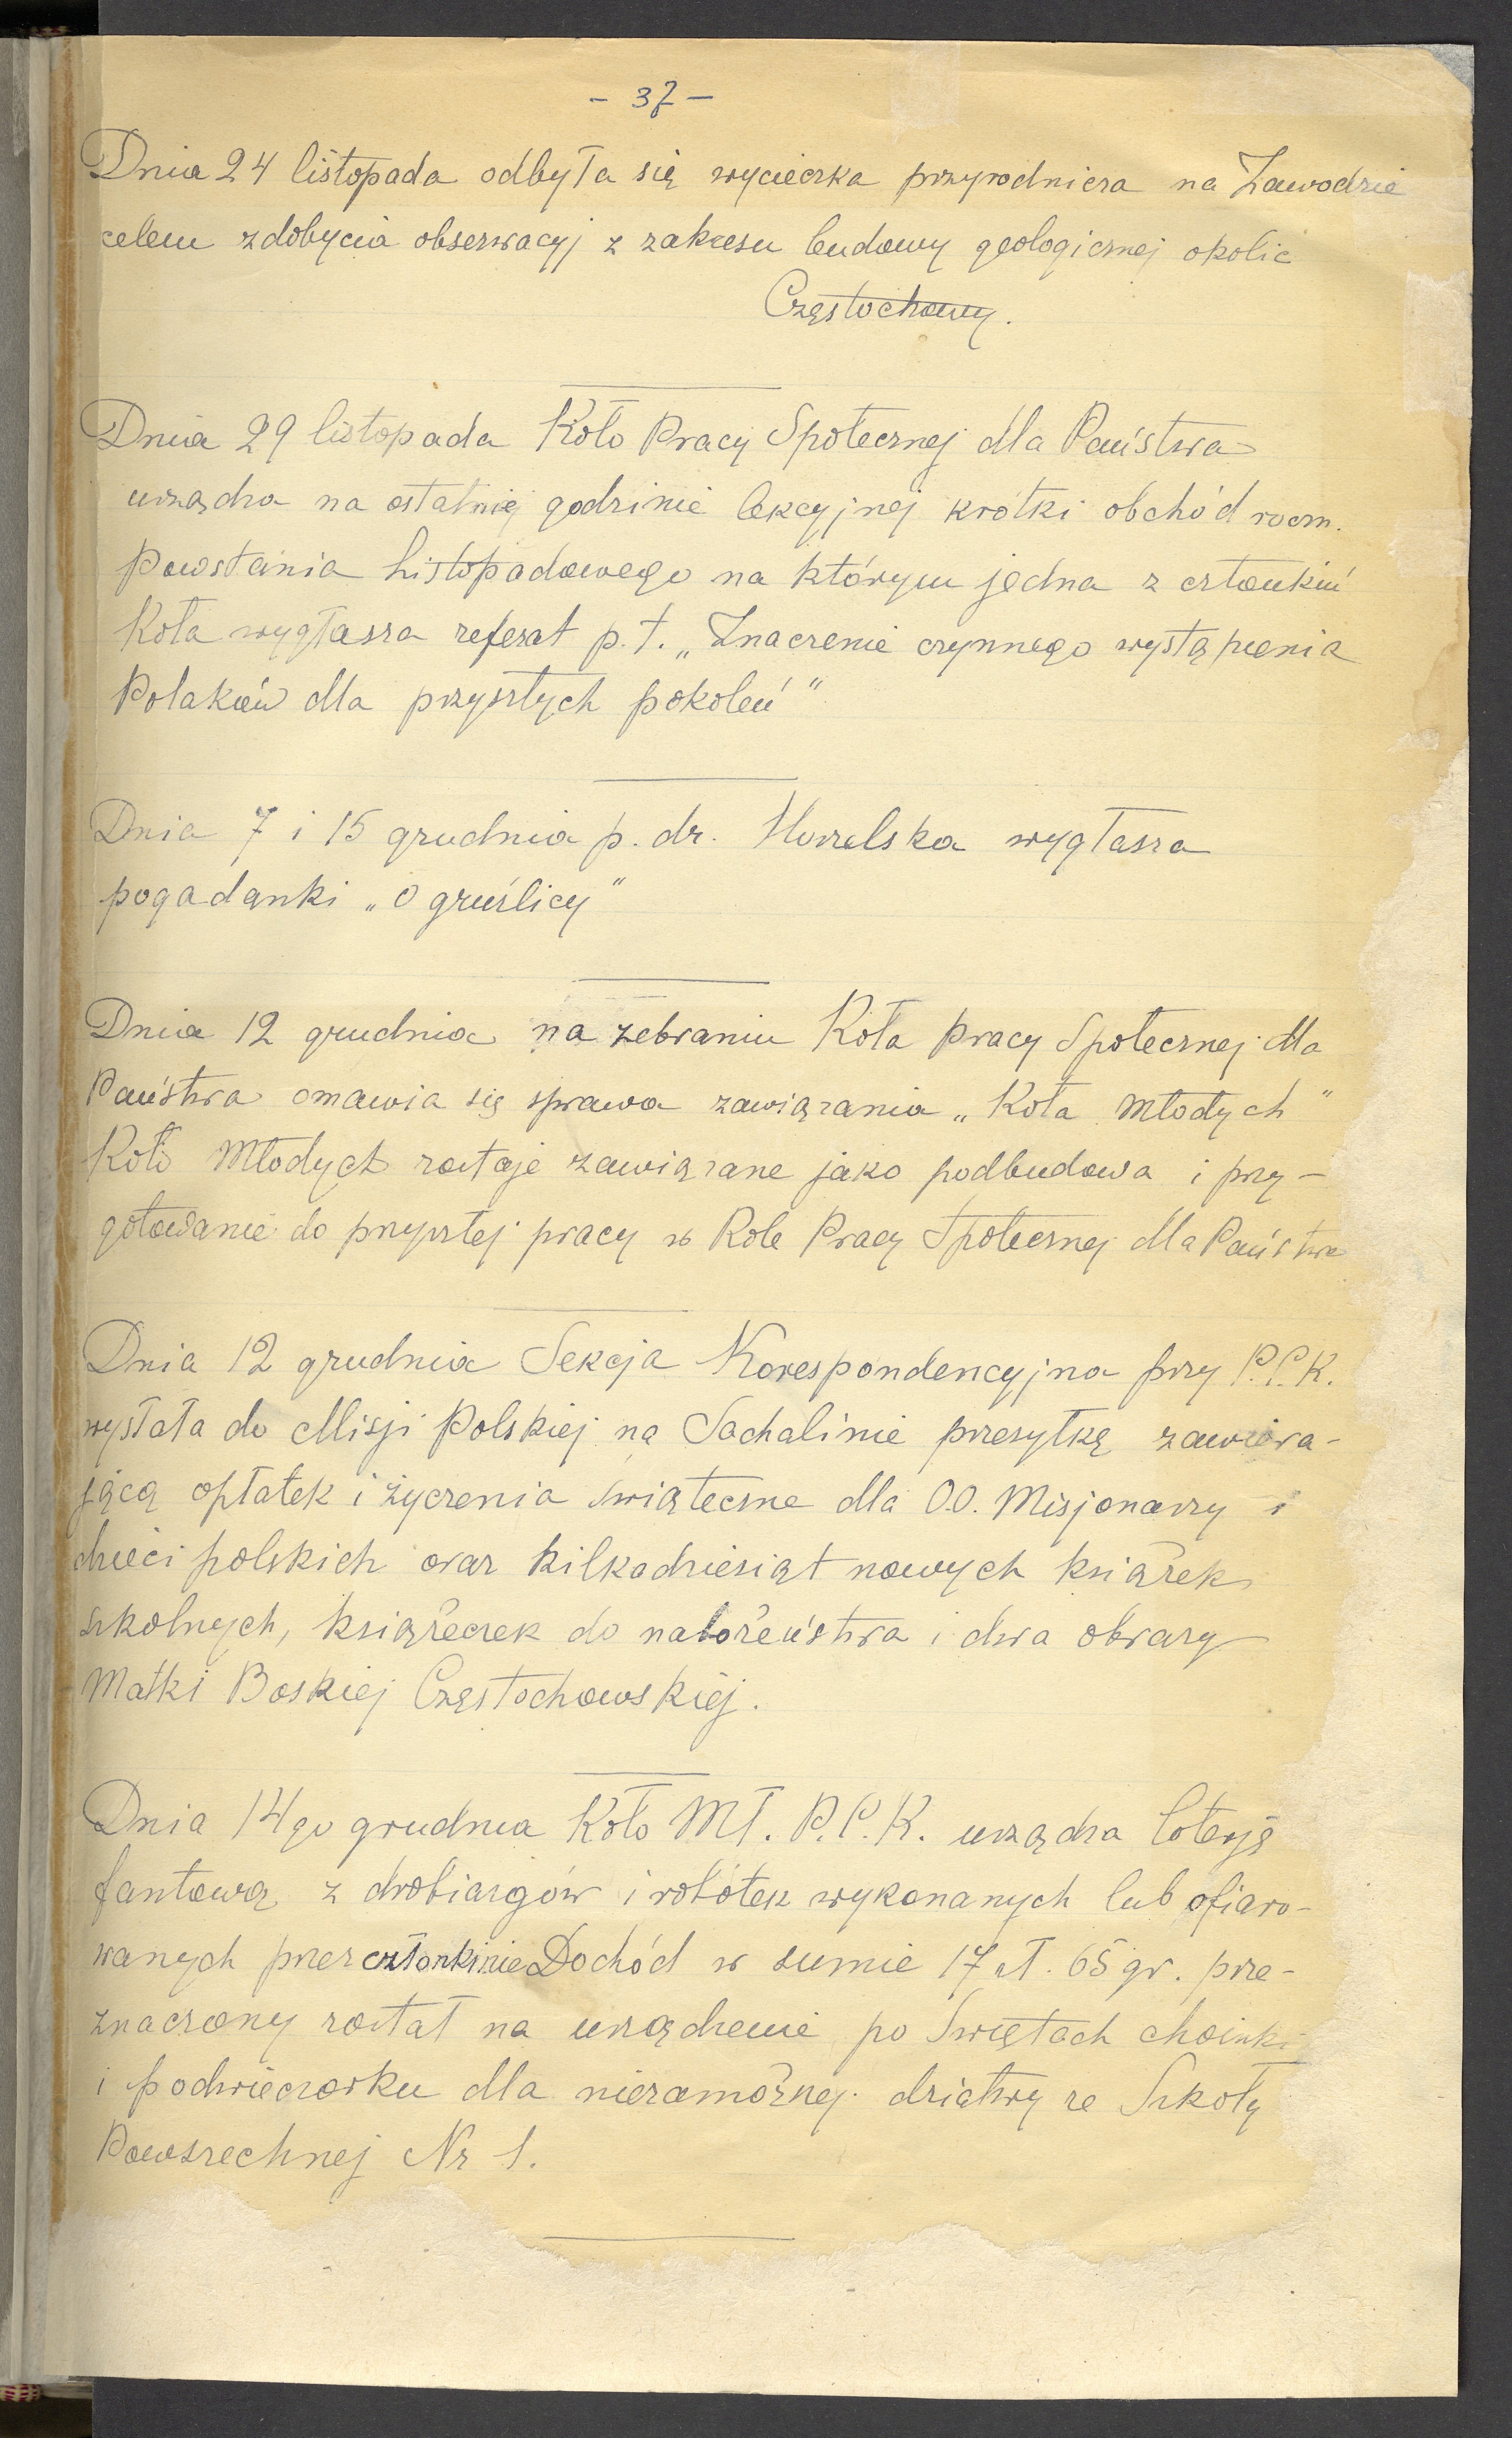 - 37 -
Dnia 24 listopada odbyła się wycieczka przyrodnicza na Zawodzie
celem zdobycia obserwacyj z zakresu budowy geologicznej okolic
Częstochowy.
Dnia 29 listopada Koło Pracy Społecznej dla Państwa
urządza na ostatniej godzinie lekcyjnej krótki obchód roczn.
Powstania Listopadowego na którym jedna z członkiń
Koła wygłasza referat p.t. „Znaczenie czynnego wystąpienia
Polaków dla przyszłych pokoleń"
Dnia 7 i 15 grudnia p. dr. wygłasza
pogadanki „O gruźlicy"
Dnia 12 grudnia na zebraniu Koła Pracy Społecznej dla
Państwa omawia się sprawa zawiązania „Koła Młodych"
Koło Młodych zostaje zawiązane jako podbudowa i przy-
gotowanie do przyszłej pracy w Kole Pracy Społecznej dla Państwa
Dnia 12 grudnia Sekcja Korespondencyjna przy P.C.K.
wysłała do Misji Polskiej na Sachalinie przesyłkę zawiera-
jącą opłatek i życzenia świąteczne dla O.O. Misjonarzy i
dzieci polskich oraz kilkadziesiąt nowych książek
szkolnych, książeczek do nabożeństwa i dwa obrazy
Matki Boskiej Częstochowskiej.
Dnia 14go grudnia Koło Mł. P.C.K. urządza loterję
fantową z drobiazgów i robótek wykonanych lub ofiaro-
wanych przez członkinie Dochód w sumie 17 zł. 65 gr. prze-
znaczony został na urządzenie po Świętach choinki
i podwieczorku dla niezamożnej dziatwy ze Szkoły
Powszechnej Nr 1.